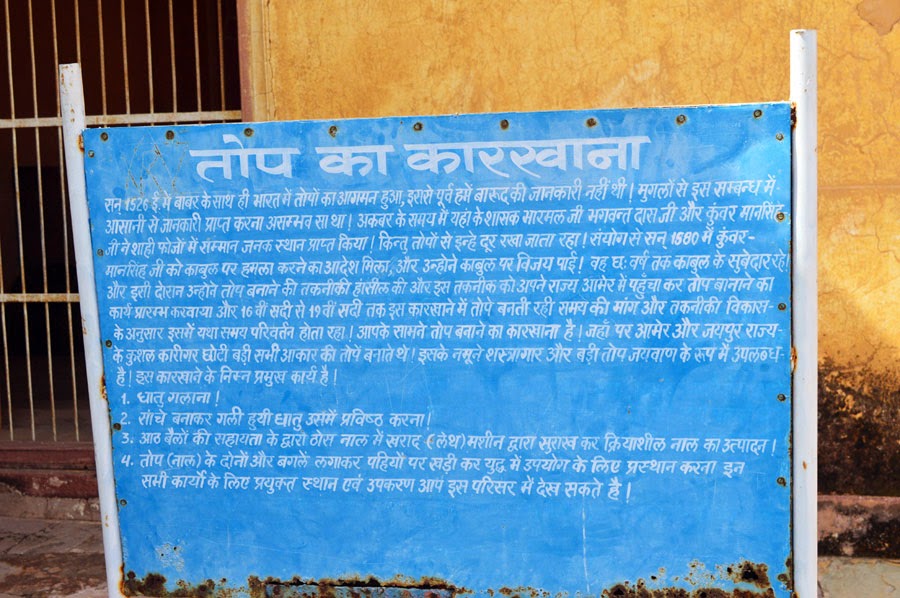 तोप का कारखाना
सन् 1526 ई में बाबर के साथ ही भारत में तोपों का आगमन हुआ, इससे पूर्व हमें बारूद की जानकारी नहीं थी। मुगलों से इस सम्बन्ध में-
आसानी से जानकारी प्राप्त करना असम्भव सा था। अकबर के समय में यहां के शासक भारमल जी भगवन्त दास जी और कुंवर मानसिंह
जी ने शाही फोजों में सम्मान जनक स्थान प्राप्त किया। किन्तु तोपों से इन्हे दूर रखा जाता रहा। संयोग से सन् 1580 में कुंवर-
मानसिंह जी को काबुल पर हमला करने का आदेश मिला, और उन्होने काबुल पर विजय पाई। वह छः वर्ष तक काबुल के सुबेदार रहे
और इसी दौरान उन्होने तोप बनाने की तकनीकी हांसील की और इस तकनीक को अपने राज्य आमेर में पहुंचा कर तोप बनाने का
कार्य प्रारम्भ करवाया और 16 वीं सदी से 19 वीं सदी तक इस कारखाने में तोपे बनती रही समय की मांग और तकनीकी विकास-
के अनुसार इसमें यथा समय परिवर्तन होता रहा। आपके सामने तोप बनाने का कारखाना है। जहाँ पर आमेर और जयपुर राज्य-
के कुशल कारीगर छोटी बड़ी सभी आकार की तोपें बनाते थे। इसके नमूने शस्त्रागार और बड़ी तोप जयवाण के रूप में उपलब्ध-
है। इस कारखाने के निम्न प्रमुख कार्य है।
1. धातु गलाना।
2. सांचे बनाकर गली हुयी धातु उसमें प्रविष्ठ करना।
3. आठ बैलों की सहायता के द्वारा ठोस नाल में खराद (लेथ) मशीन द्वारा सुराख कर क्रियाशील नाल का उत्पादन।
4. तोप (नाल) के दोनों और बगलें लगाकर पहियों पर खड़ी कर युद्ध में उपयोग के लिए प्रस्थान करना इन
सभी कार्यो के लिए प्रयुक्त स्थान एवं उपकरण आप इस परिसर में देख सकते है।